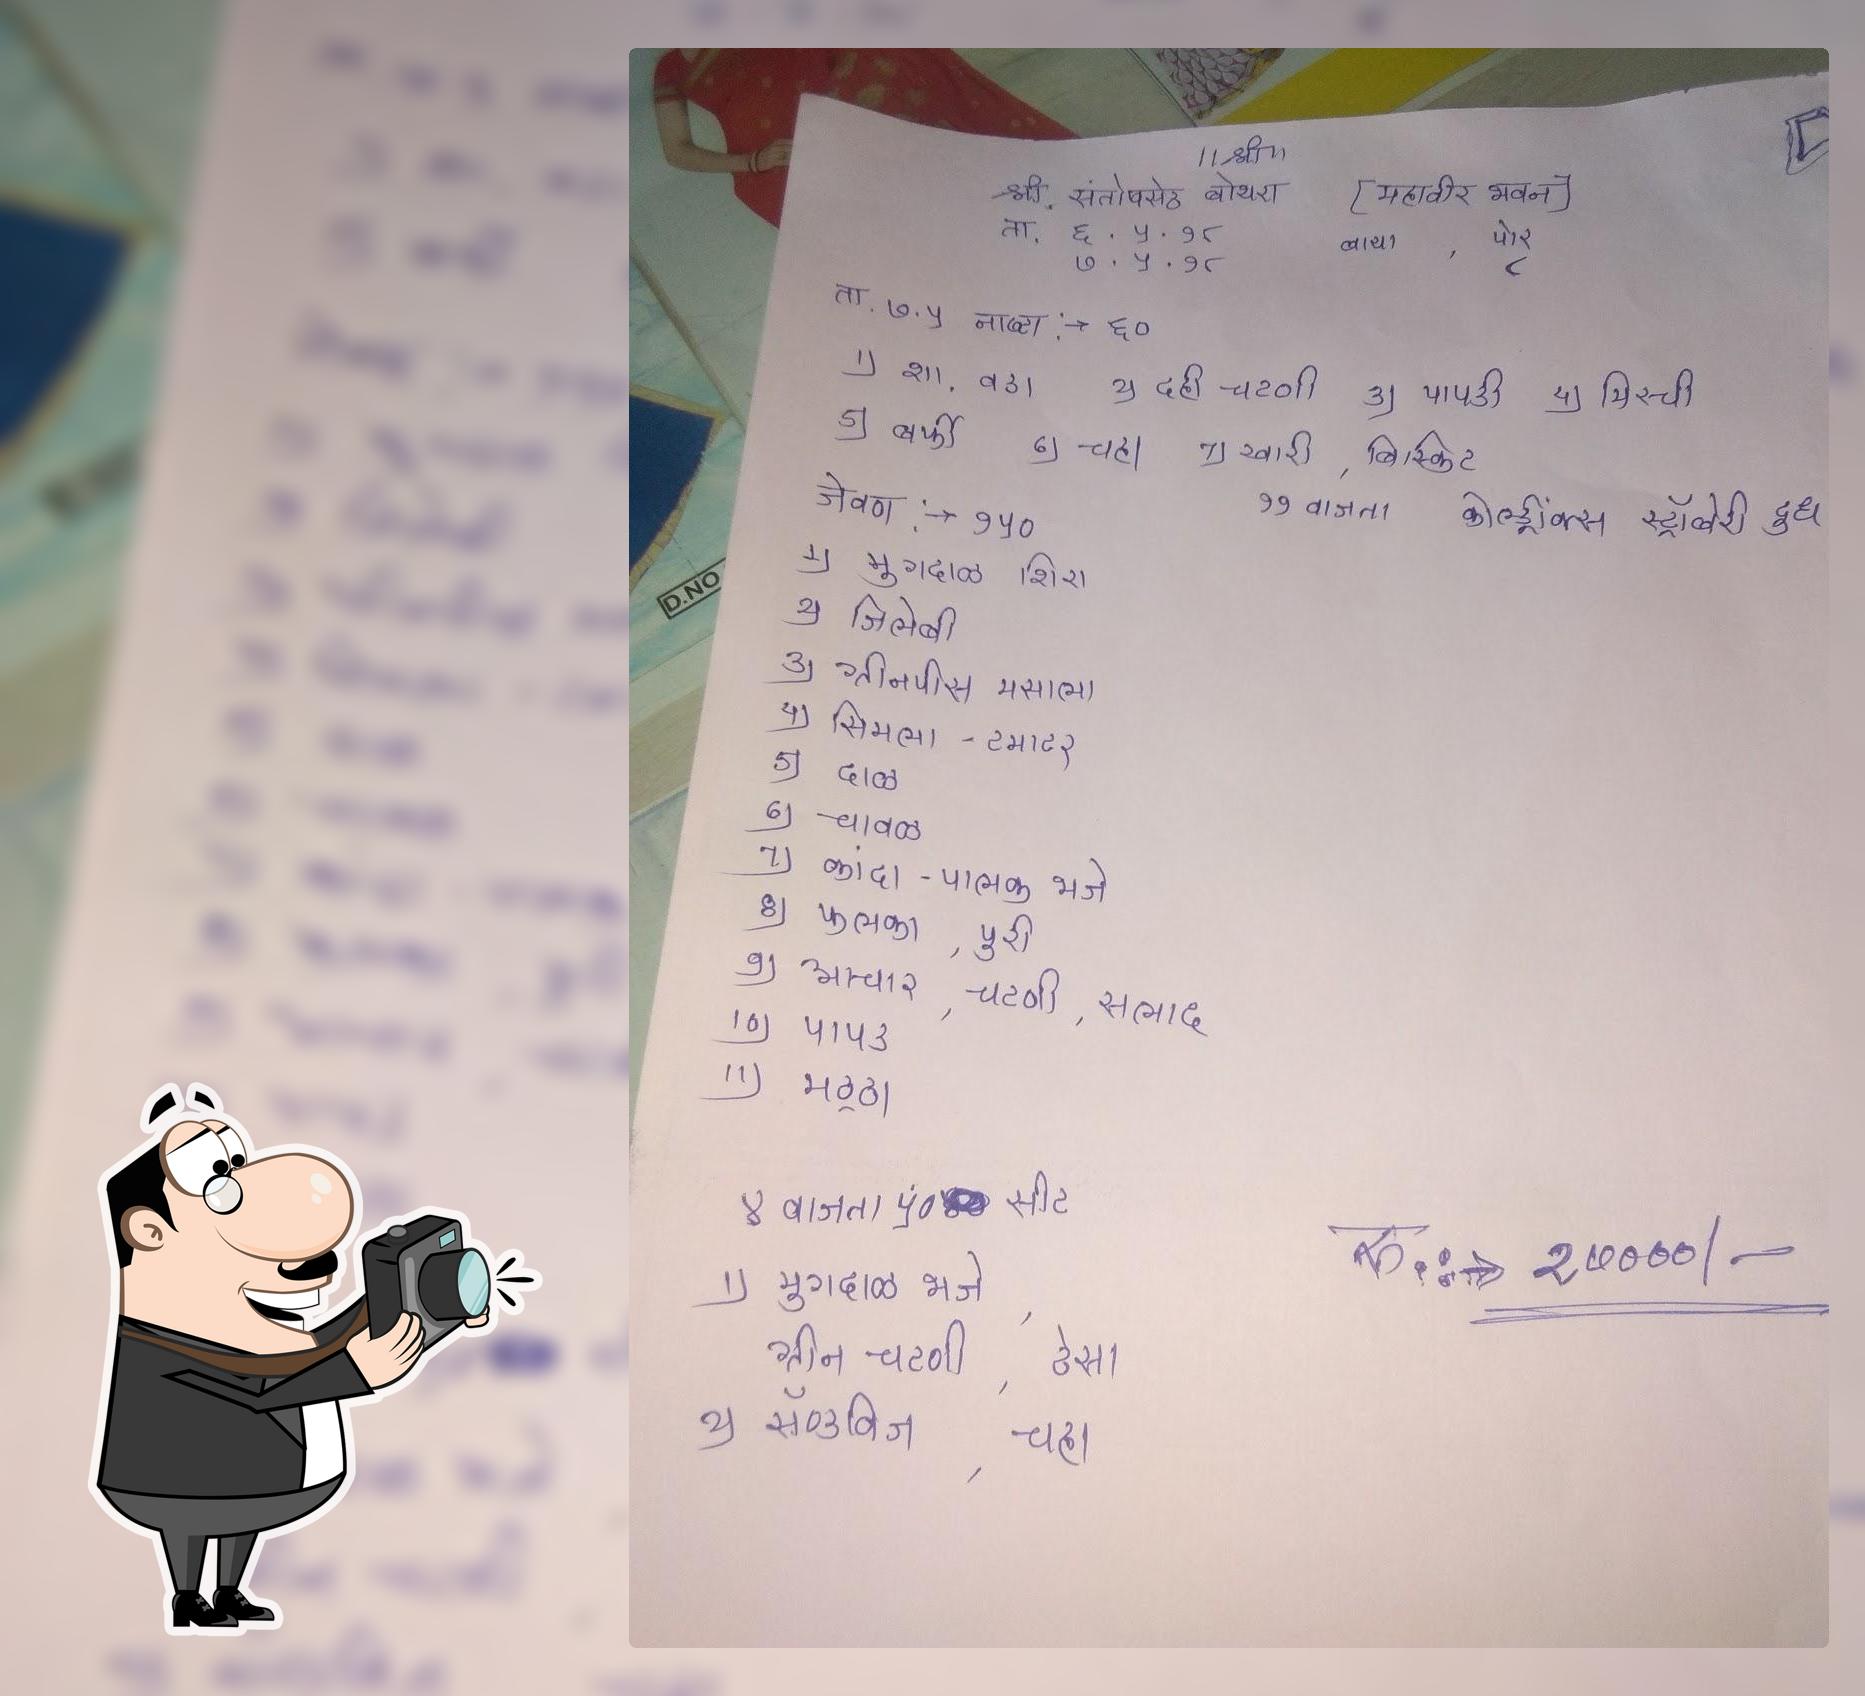 ॥श्री॥
श्री. संतोषसेठ बोथरा [महावीर भवन]
ता. ६.५.१८
७.५.१८
ता. ७.५ नाष्टा :→ ६०
1) शा. वडा 2) दही चटणी 3) पापडी 4) मिरची
5) बर्फी 6) चहा 7) खारी, बिस्किट
जेवण :→ १५० ११ वाजता कोल्ड्रींक्स स्ट्रॉबेरी दुध
1) मुगदाळ शिरा
2) जिलेबी
3) ग्रीनपीस मसाला
4) सिमला - टमाटर
5) दाळ
6) चावळ
7) कांदा - पालक भजे
8) फुलका, पुरी
9) आचार, चटणी, सलाद
10) पापड
11) मठ्ठा
४ वाजता ५० सीट
1) मुगदाळ भजे,
ग्रीन चटणी, ठेसा
2) सॅण्डविज, चहा
D.NO